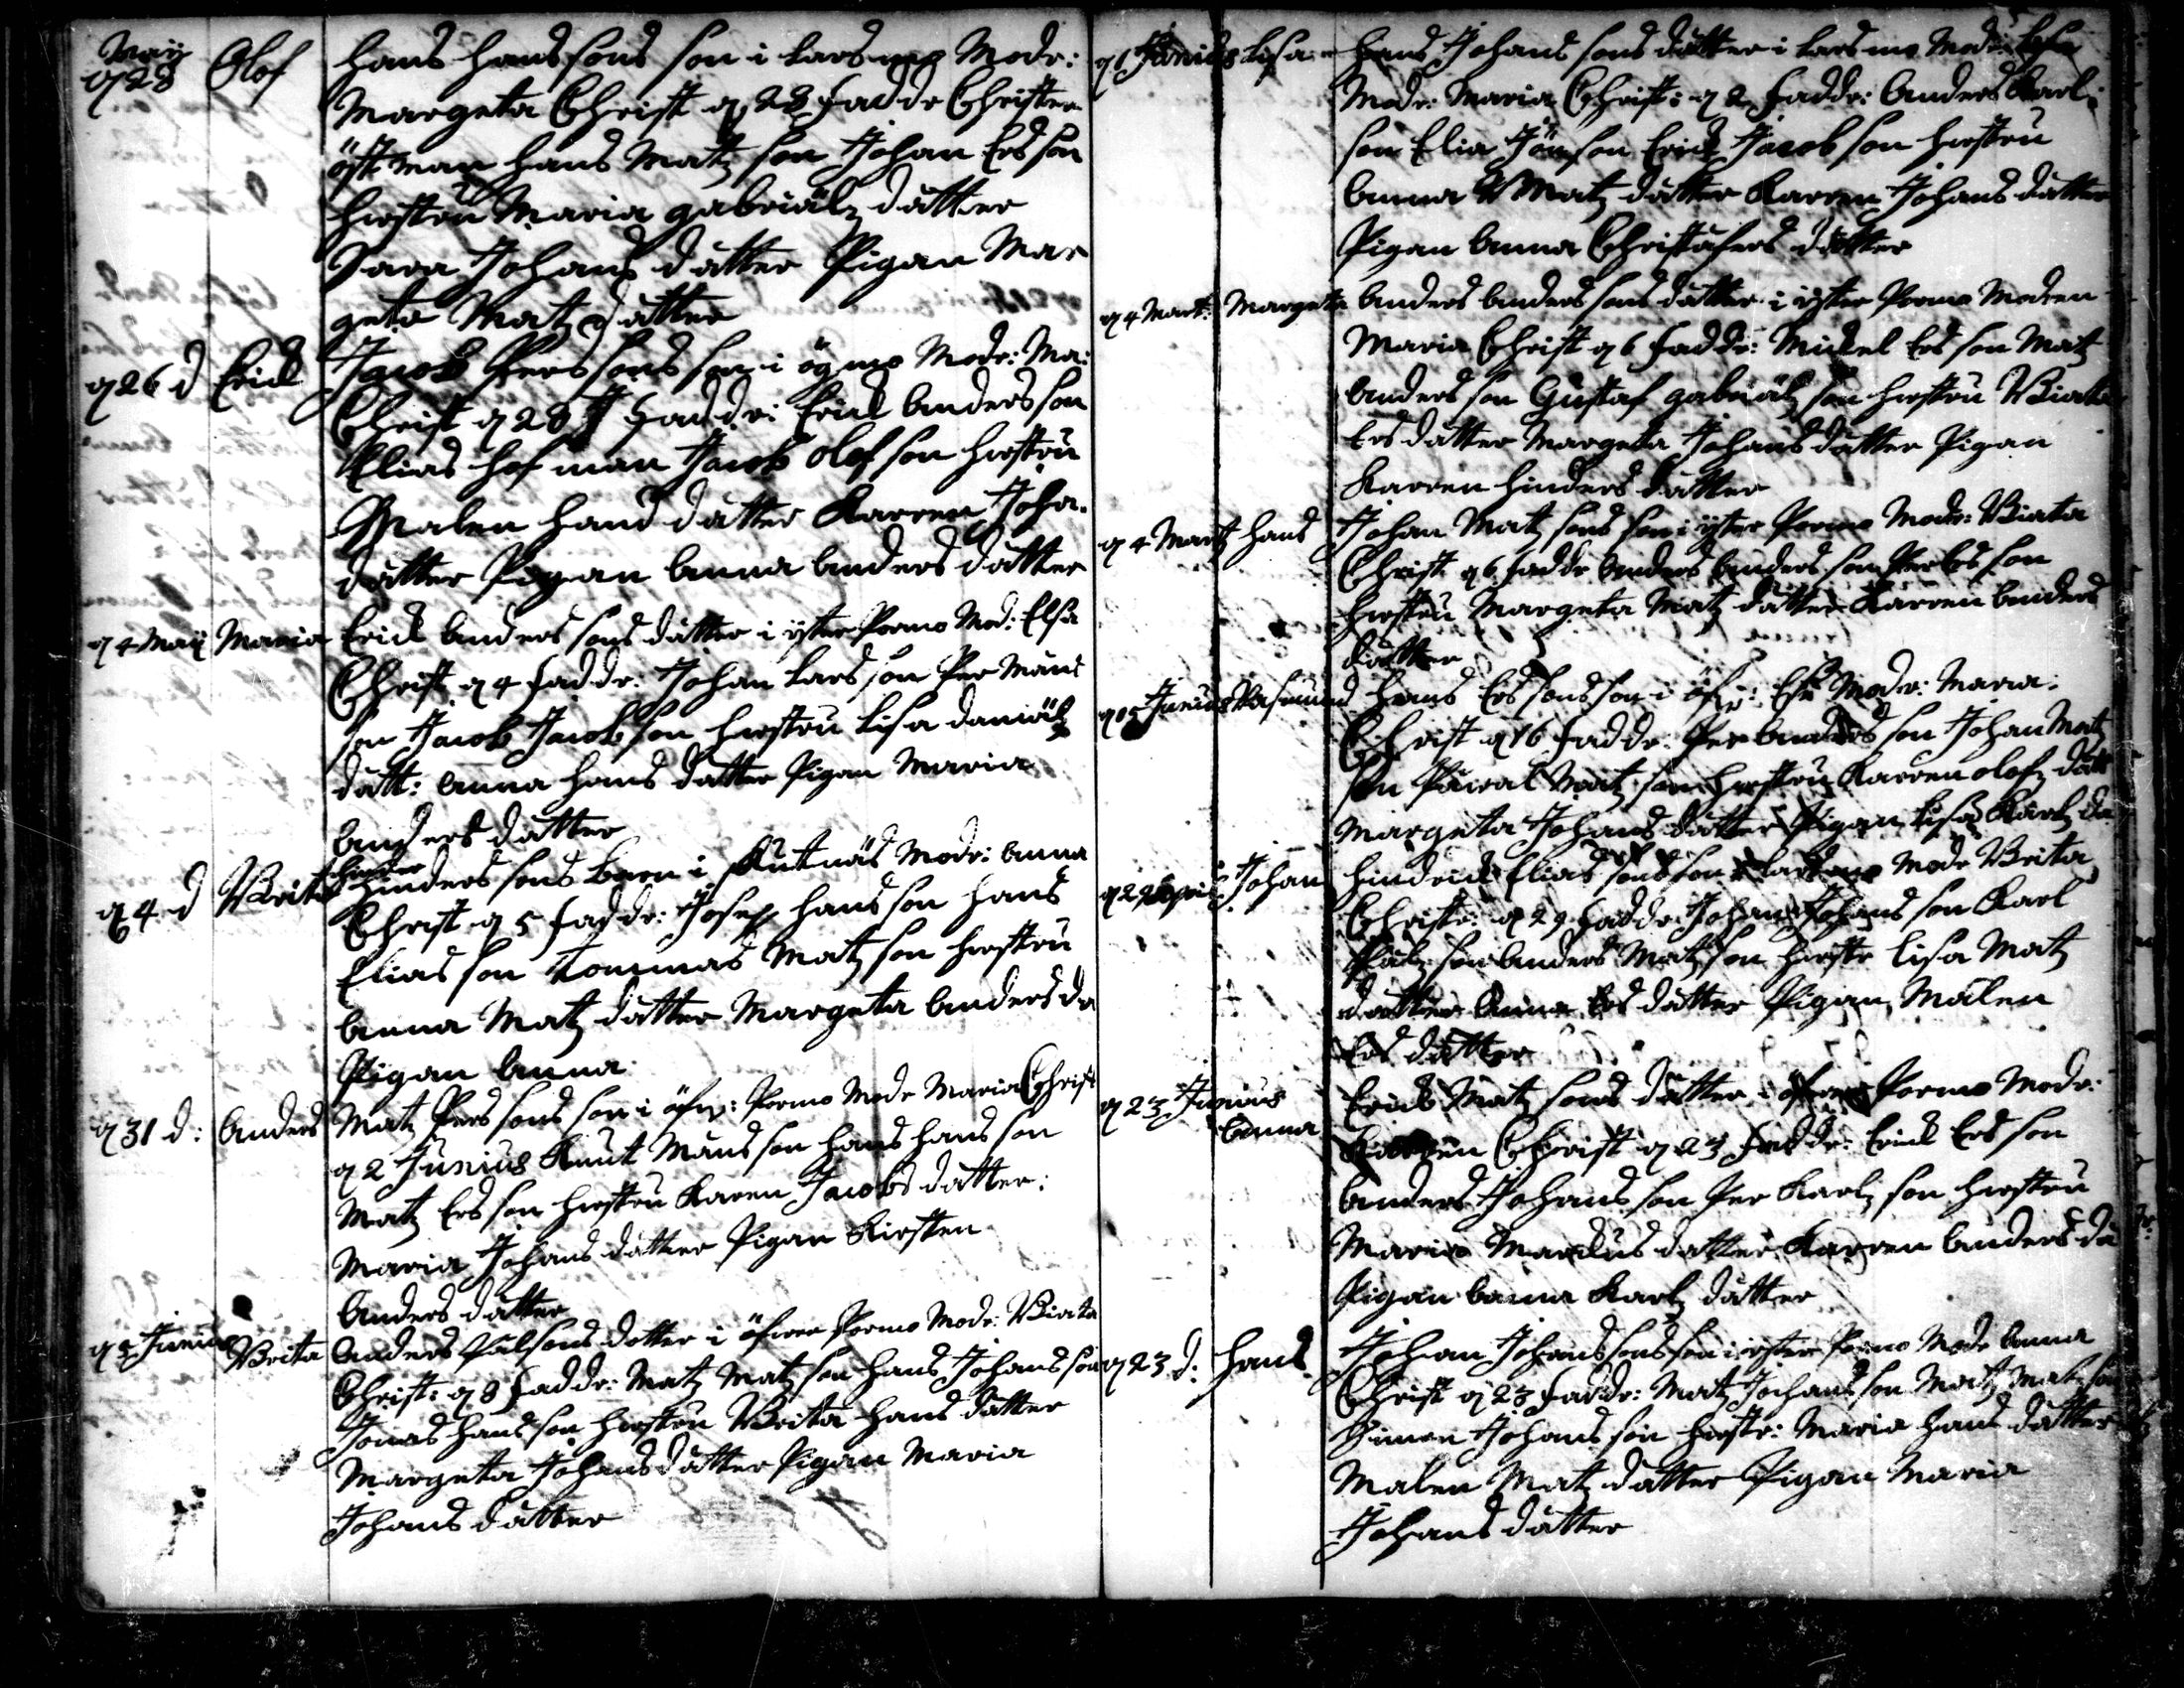 Maij
d 28 Olof Hans Hanssons son i Larsmo Modr:
Margeta Christ d 28 Faddr Christer
öst man Hans Matz son Johan Ersson
hustru Maria gabriälz dåtter
Sara Johans dåtter Pigan Mar
geta Matz dåtter
d 26 d Erick Jacob Pers sons son i ögmo Modr: Ma:
Christ d 28 Faddr: Erick Anders son
Elias hofman Jacob Olof son hustru
Malen Hans dåtter Karren Joha.
dåtter Pigan Anna Anders dåtter
d 4 Maij Maria Erick Anders sons dåtter i ytter Pormo Mod: Elsa
Christ d 4 Faddr: Johan Lars son Per Måns
son Jacob Jacob son hustru Lisa daniälz
dått: Anna Hans dåtter Pigan Maria
Anders dåtter
d 4 d Brita Hinders sons barn i Kutnäs Modr: Anna
Christ d 5 Faddr: Josef Hans son Hans
Elias son Tommas Matz son hustru
Anna Matz dåtter Margeta Anders då
Pigan Anna
d 31 d: Anders Matz Pers sons son i öfwr: Pormo Modr Maria Christ
d 2 Junius Knut Måns son Hans Hans son
Matz Ers son hustru Karen Jacobs dåtter:
Maria Johans dåtter Pigan Kirsten
Anders dåtter
Junius Brita Anders Pålsons dotter i öfwer Pormo Modr: Biata
Christ: d 8 Faddr: Matz Matz son Hans Johans son
Jonas Hans son hustru Brita Hans dåtter
Margeta Johans dåtter Pigan Maria
Johans dåtter
d 1 Junius Lisa Hans Johans sons dåtter i Larsmo Modr:
Modr: Maria Christ: d 2 Faddr: Anders Karl:
son Elia Jönson Erick Jacob son hustru
Anna Matz dåtter Karren Johans dåtter
Pigan Anna Christafers dåtter
d 4 Mart: Margeta Anders Anders sons dåtter i ytter Pormo Modren
Maria Christ d 6 Faddr: Mickel Ers son Matz
Anders son Gustaf gabriälz son hustru Biata
Ers dåtter Margeta Johans dåtter Pigan
Karren Hinders dåtter
d 4 Martz Hans Johan Matz sons son i ytter Pormo Modr: Biata
Christ d 6 Faddr Anders Anders son Per Ers son
hustru Margeta Matz dåtter Karren Anders
dåtter
d 15 Junius Hans Ers sons son i öfwr: Modr: Maria:
Christ d 16 Faddr: Per Anders son Johan Matz
son Påwal Matz son hustru Karren Olofz dått
Margeta Johans dåtter Pigan Lisa Karlz då
Johan Hindrick Elias sons son i Larsmo Modr Brita
Christ: d 29 Faddr Johan Johans son Karl
Pålz son Anders Matz son hustr Lisa Matz
dåtter Anna Ers dåtter Pigan Malen
Ers dåtter
d 23 Junius Anna Erick Matz sons dåtter i öfwer Pormo Modr:
Karren Christ d 23 Faddr: Erick Ers son
Anders Johans son Per Karlz son hustru
Maria Markus dåtter Karren Anders då
Pigan Anna Karlz dåtter
d 23 d: Hans Johan Johans sons son i ytter Pormo Modr Anna
Christ d 23 Faddr: Matz Johans son Matz Matz son
Simon Johans son hustr: Maria Hans dåtter
Malen Matz dåtter Pigan Maria
Johans dåtter